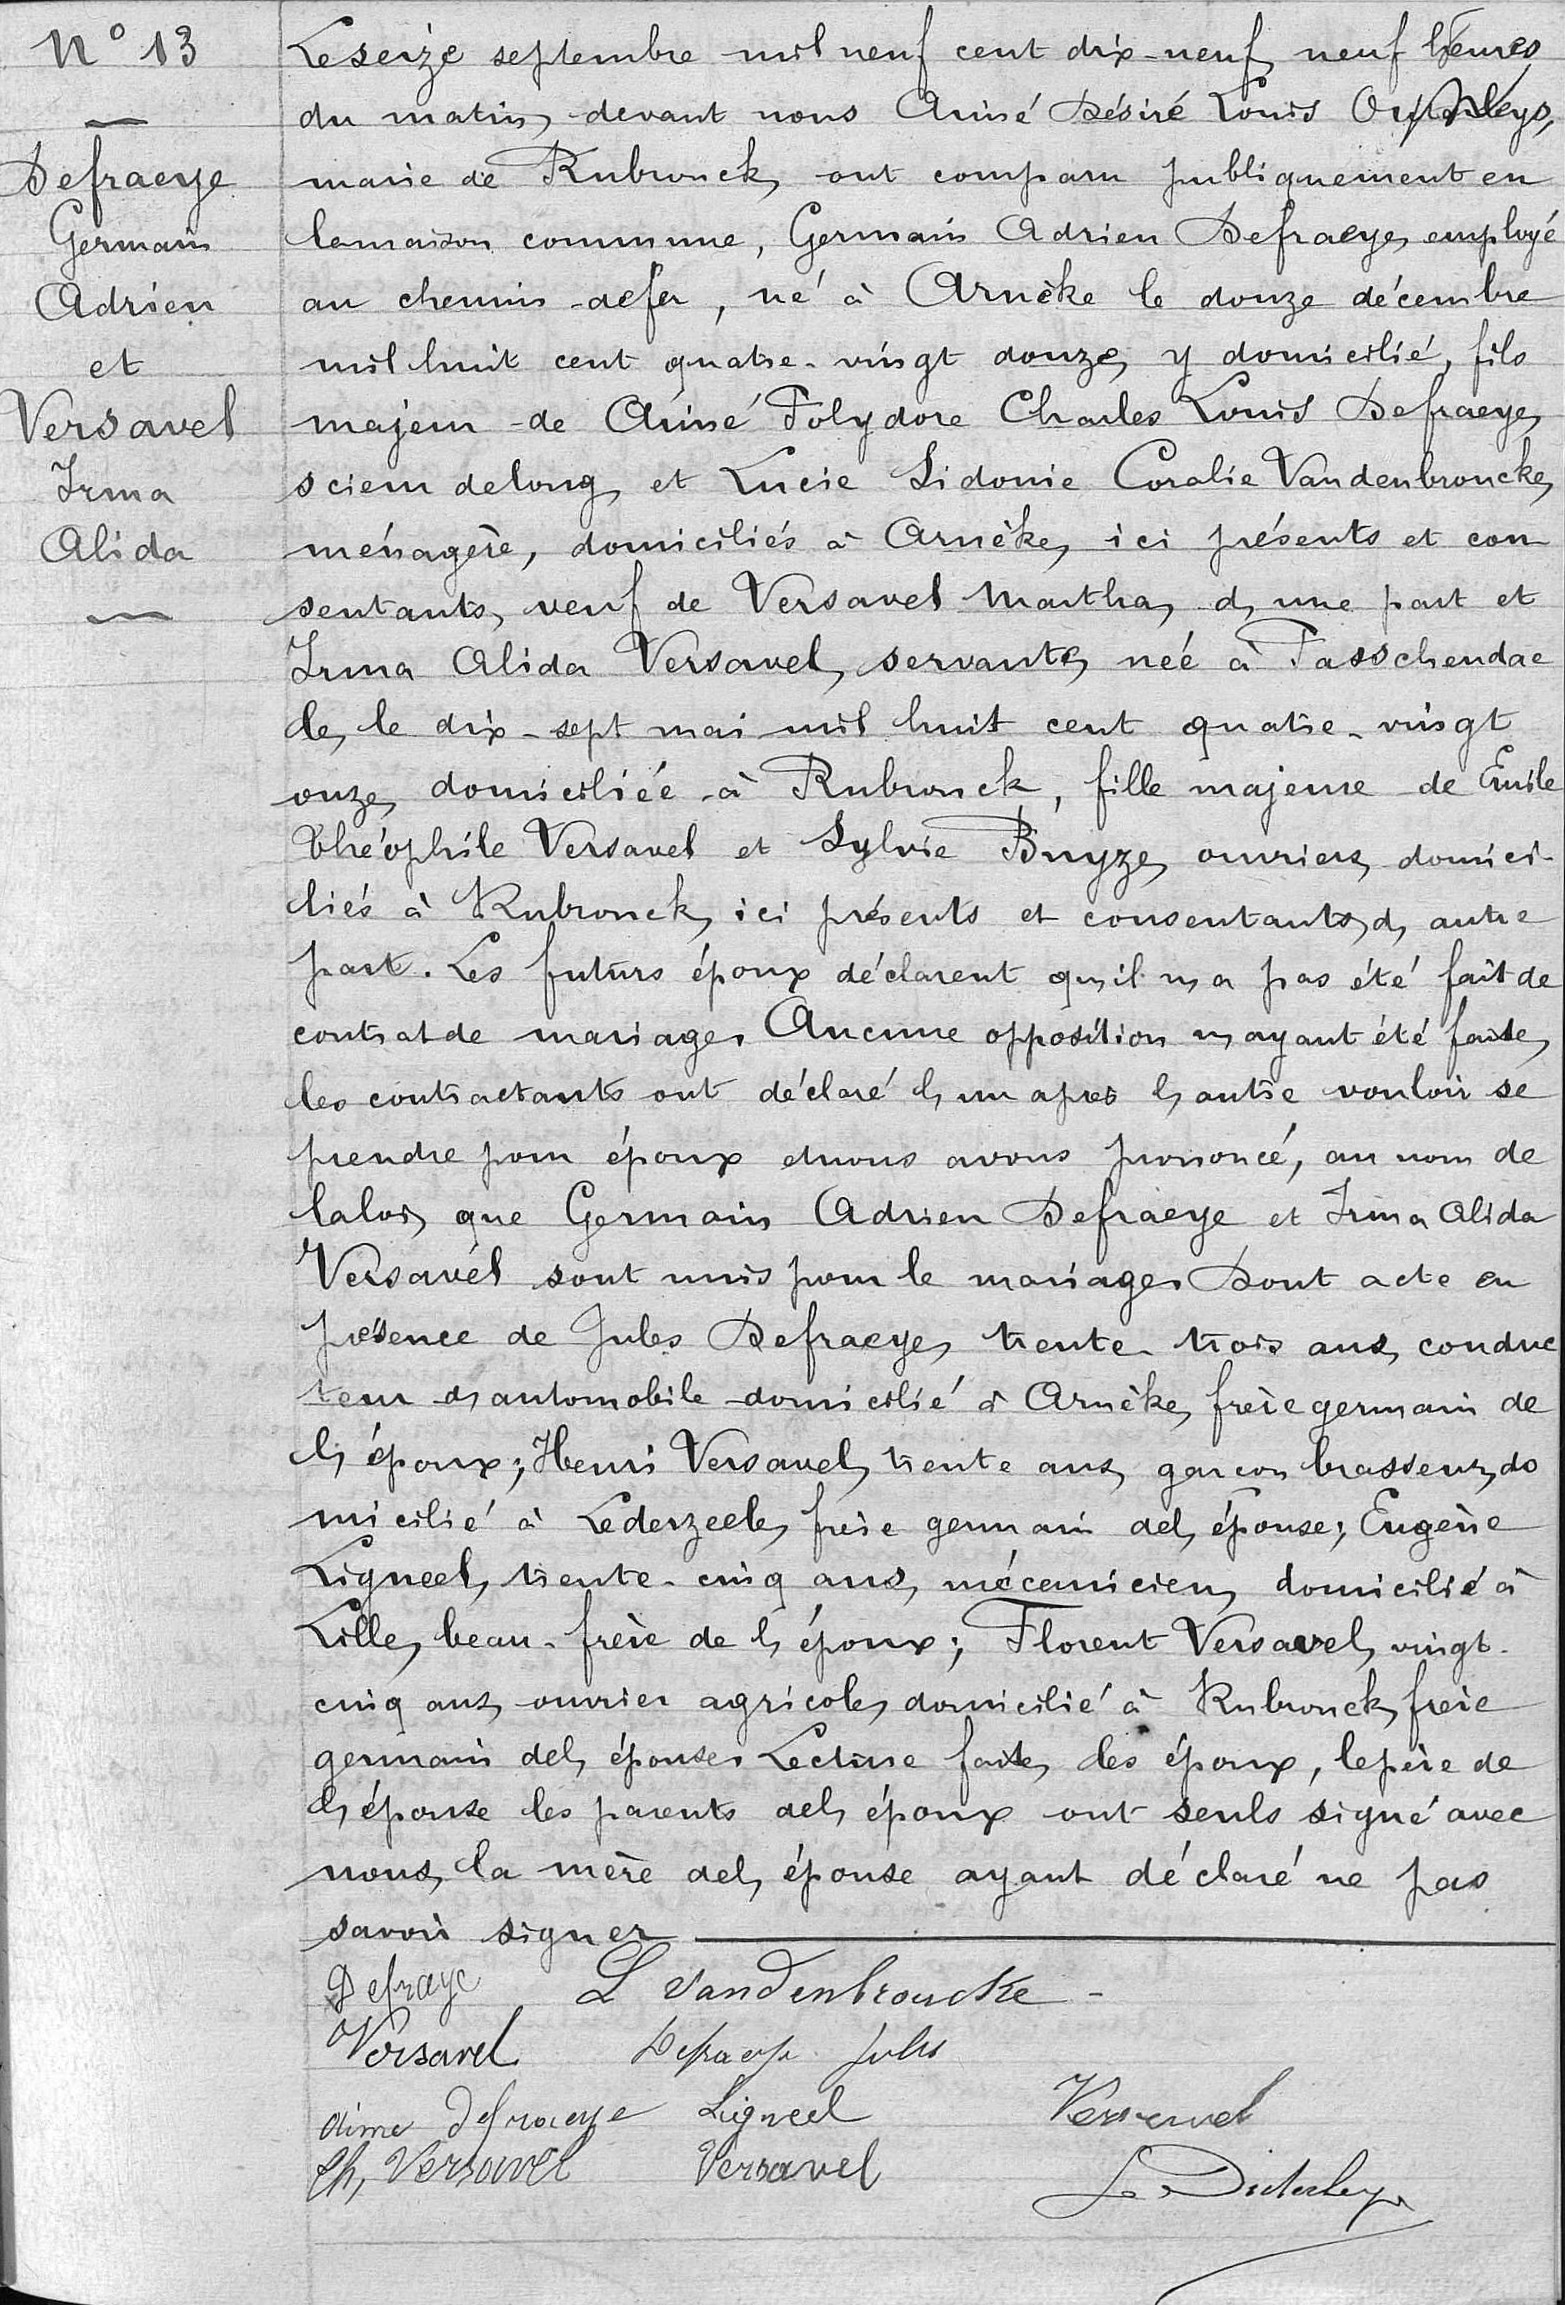 N° 13
Defraeye
Germain
Adrien
et
Versavel
Irma
Alida
Le seize septembre mil neuf cent dix-neuf, neuf heures
du matin, devant nous Aimé Désiré Louis
maire de Rubrouck, ont comparu publiquement en
la maison commune, Germain Adrien Defraeye, employé
au chemin de fer, né à Arnèke le douze décembre
mil huit cent quatre-vingt douze, y domicilié, fils
majeur de Aimé Polydore Charles Louis Defraeye,
scieur de long, et Lucie Sidonie Coralie Vandenbroucke,
ménagère, domiciliés à Arnèke, ici présents et con
sentants, veuf de Versavel Martha, d, une part et
Irma Alida Versavel, servante, née à Passchendae
le, le dix-sept mai mil huit cent quatre-vingt
onze, domiciliée à Rubrouck, fille majeure de Emile
Théophile Versavel et Sylvie Buyze, ouvriers, domici-
liés à Rubrouck, ici présents et consentants, d, autre
part. Les futurs époux déclarent qu,il n,a pas été fait de
contrat de mariage. Aucune opposition n,ayant été faite,
les contractants ont déclaré l, un après l, autre vouloir se
prendre pour époux et nous avons prononcé, au nom de
la loi, que Germain Adrien Defraeye et Irma Alida
Versavel sont unis pour le mariage. Dont acte en
présence de Jules Defraeye, trente-trois ans, conduc
teur d, automobile domicilié à Arnèke, frère germain de
l, époux; Henri Versavel, trente ans, garçon brasseur, do
micilié à Lederzeele, frère germain de l, épouse; Eugène
Ligneel, trente-cinq ans, mécanicien, domicilié à
Lille, beau-frère de l, époux; Florent Versavel, vingt-
cinq ans, ouvrier agricole, domicilié à Rubrouck, frère
germain de l, épouse. Lecture faite, les époux, le père de
l, épouse les parents de l, époux ont seuls signé avec
nous, la mère de l, épouse ayant déclaré ne pas
savoir signer
Defraye L Vandenbroucke
Versavel Defraeye Jules
Aime Defraeye Ligneel Versavel
Th, Versavel Versavel